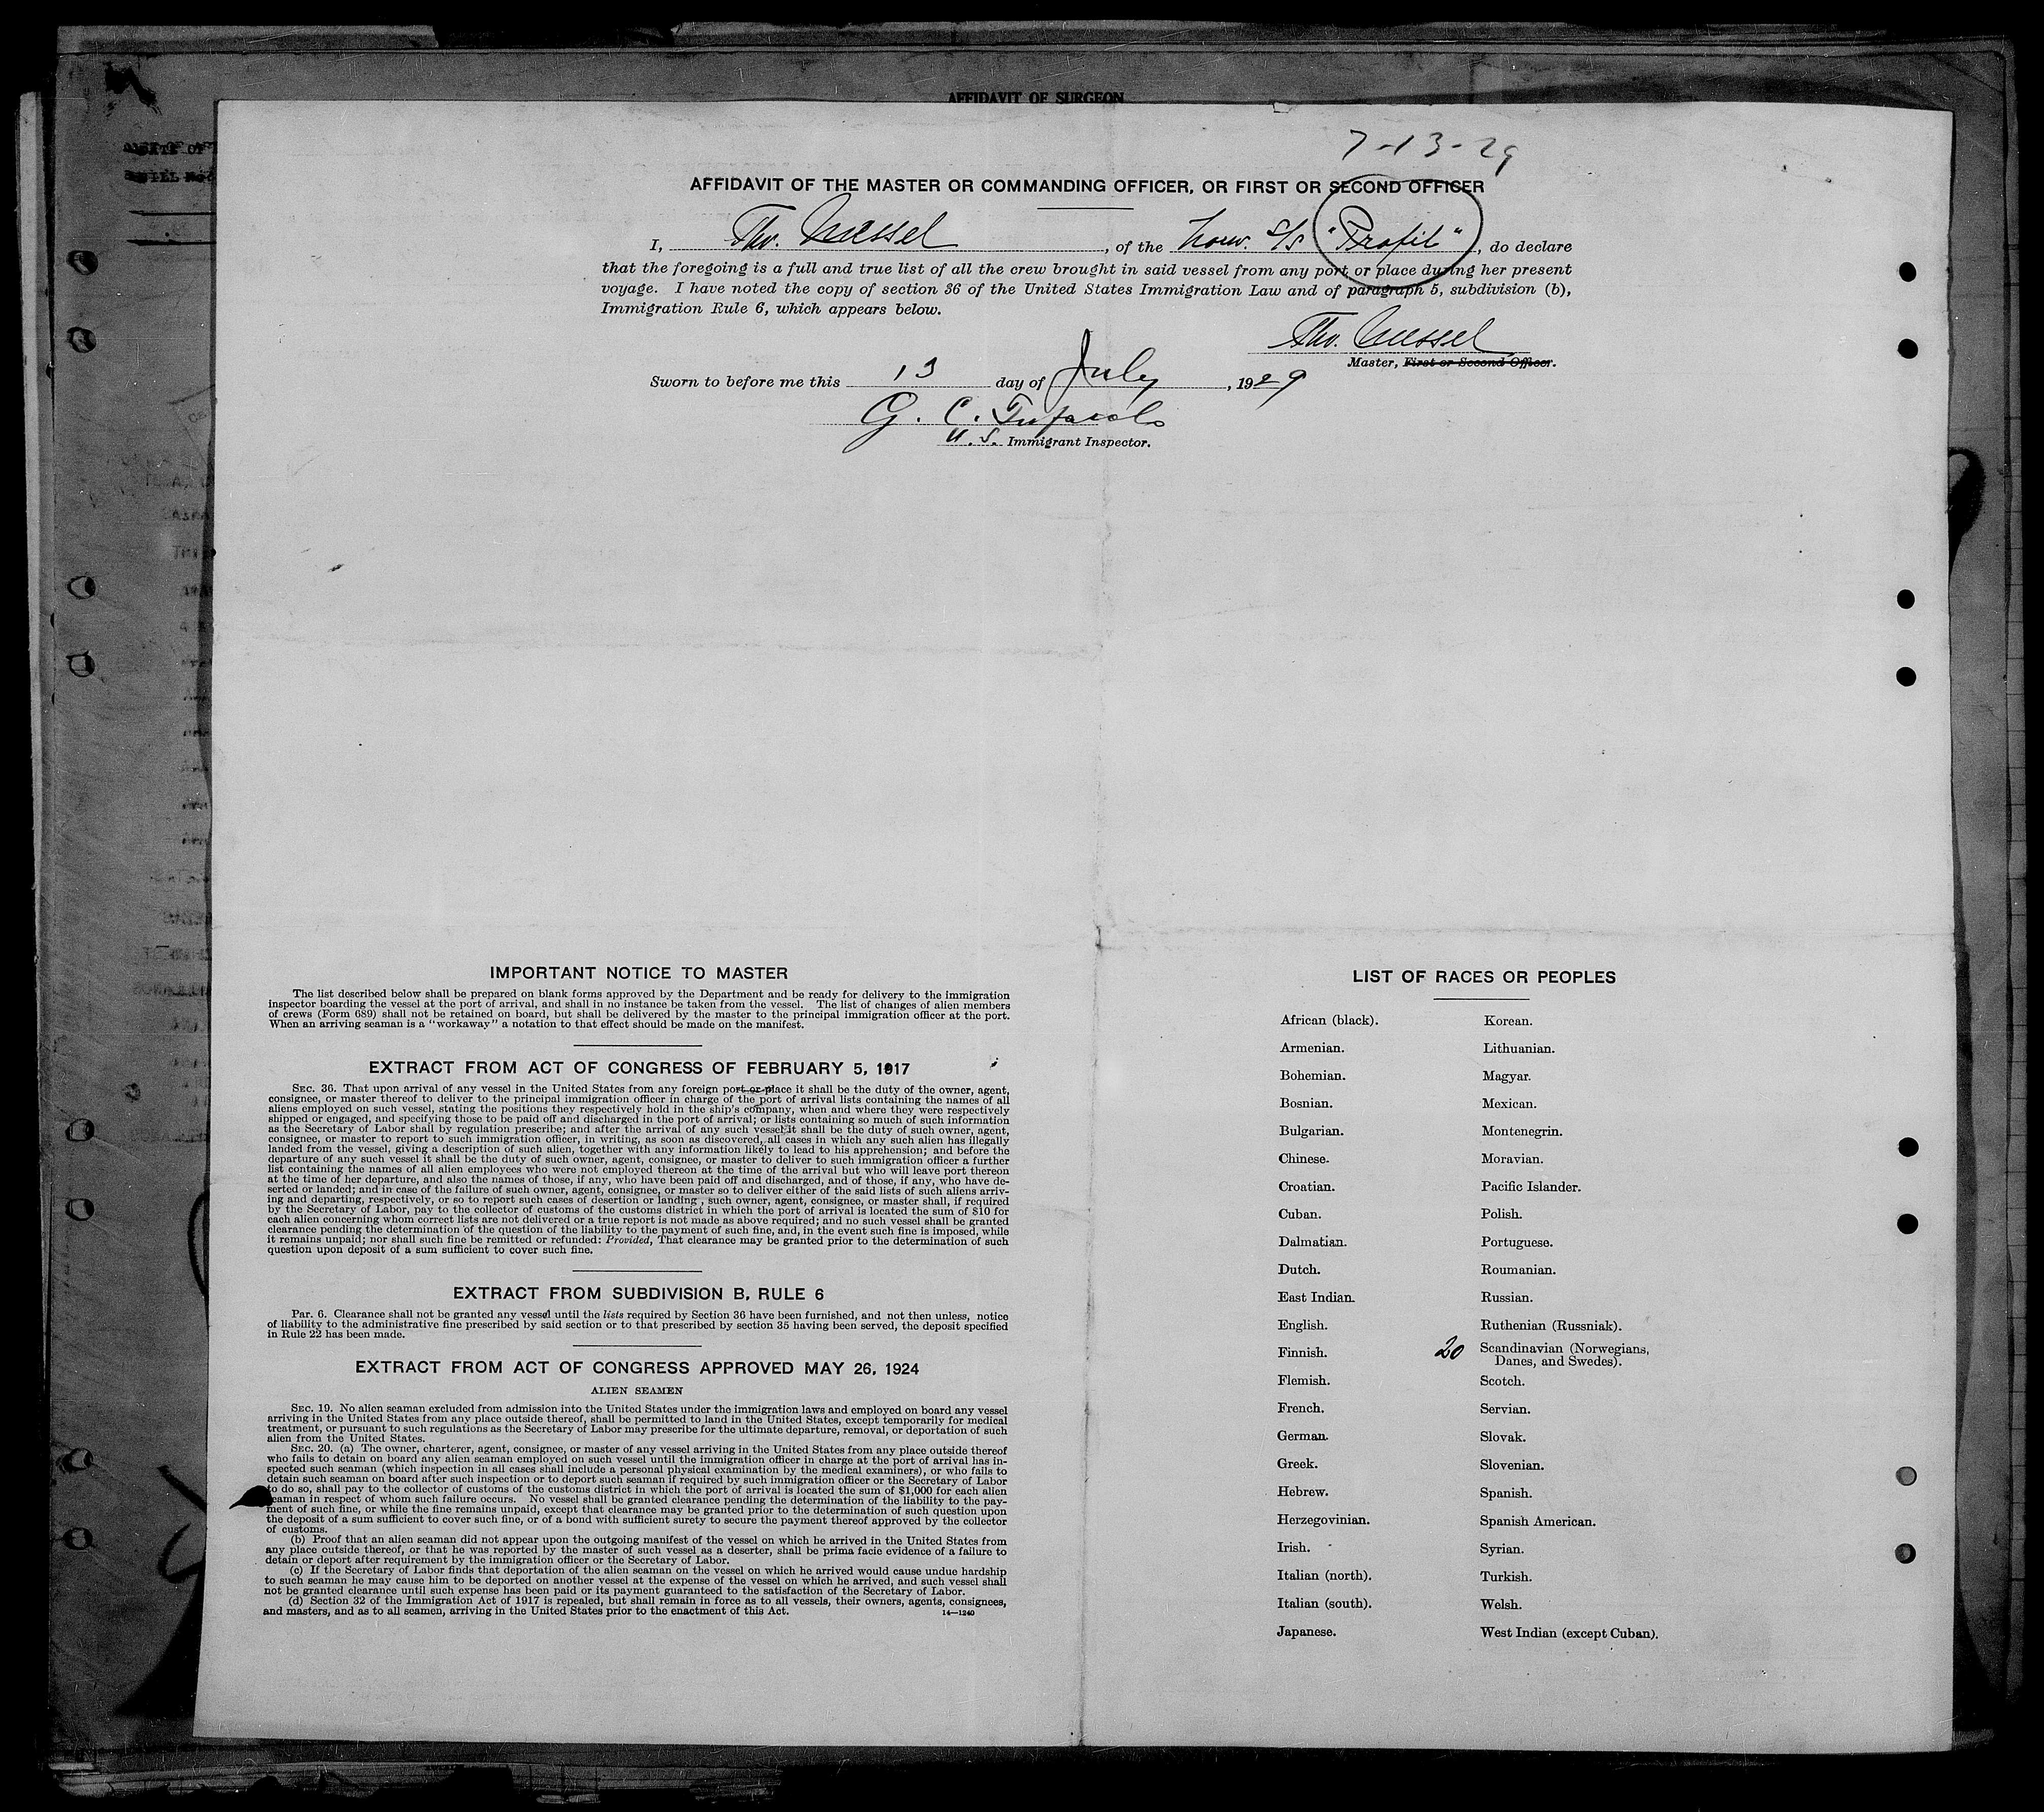 AFFIDAVIT OF SURGEON
7-13-29
AFFIDAVIT OF THE MASTER OR COMMANDING OFFICER, OR FIRST OR SECOND OFFICER
I, Tho. , of the Norw. S/S "Profit", do declare
that the foregoing is a full and true list of all the crew brought in said vessel from any port or place during her present
voyage. I have noted the copy of section 36 of the United States Immigration Law and of paragraph 5, subdivision (b),
Immigration Rule 6, which appears below.
Tho.
Master, First or Second Officer.
Sworn to before me this 13 day of July, 1929
G. C.
U. S. Immigrant Inspector.
IMPORTANT NOTICE TO MASTER
The list described below shall be prepared on blank forms approved by the Department and be ready for delivery to the immigration
inspector boarding the vessel at the port of arrival, and shall in no instance be taken from the vessel. The list of changes of alien members
of crews (Form 689) shall not be retained on board, but shall be delivered by the master to the principal immigration officer at the port.
When an arriving seaman is a "workaway" a notation to that effect should be made on the manifest.
EXTRACT FROM ACT OF CONGRESS OF FEBRUARY 5, 1917
SEC. 36. That upon arrival of any vessel in the United States from any foreign port or place it shall be the duty of the owner, agent,
consignee, or master thereof to deliver to the principal immigration officer in charge of the port of arrival lists containing the names of all
aliens employed on such vessel, stating the positions they respectively hold in the ship's company, when and where they were respectively
shipped or engaged, and specifying those to be paid off and discharged in the port of arrival; or lists containing so much of such information
as the Secretary of Labor shall by regulation prescribe; and after the arrival of any such vessel it shall be the duty of such owner, agent,
consignee, or master to report to such immigration officer, in writing, as soon as discovered, all cases in which any such alien has illegally
landed from the vessel, giving a description of such alien, together with any information likely to lead to his apprehension; and before the
departure of any such vessel it shall be the duty of such owner, agent, consignee, or master to deliver to such immigration officer a further
list containing the names of all alien employees who were not employed thereon at the time of the arrival but who will leave port thereon
at the time of her departure, and also the names of those, if any, who have been paid off and discharged, and of those, if any, who have de-
serted or landed; and in case of the failure of such owner, agent, consignee, or master so to deliver either of the said lists of such aliens arriv-
ing and departing, respectively, or so to report such cases of desertion or landing, such owner, agent, consignee, or master shall, if required
by the Secretary of Labor, pay to the collector of customs of the customs district in which the port of arrival is located the sum of $10 for
each alien concerning whom correct lists are not delivered or a true report is not made as above required; and no such vessel shall be granted
clearance pending the determination of the question of the liability to the payment of such fine, and, in the event such fine is imposed, while
it remains unpaid; nor shall such fine be remitted or refunded: Provided, That clearance may be granted prior to the determination of such
question upon deposit of a sum sufficient to cover such fine.
EXTRACT FROM SUBDIVISION B, RULE 6
Par. 6. Clearance shall not be granted any vessel until the lists required by Section 36 have been furnished, and not then unless, notice
of liability to the administrative fine prescribed by said section or to that prescribed by section 35 having been served, the deposit specified
in Rule 22 has been made.
EXTRACT FROM ACT OF CONGRESS APPROVED MAY 26, 1924
ALIEN SEAMEN
SEC. 19. No alien seaman excluded from admission into the United States under the immigration laws and employed on board any vessel
arriving in the United States from any place outside thereof, shall be permitted to land in the United States, except temporarily for medical
treatment, or pursuant to such regulations as the Secretary of Labor may prescribe for the ultimate departure, removal, or deportation of such
alien from the United States.
SEC. 20. (a) The owner, charterer, agent, consignee, or master of any vessel arriving in the United States from any place outside thereof
who fails to detain on board any alien seaman employed on such vessel until the immigration officer in charge at the port of arrival has in-
spected such seaman (which inspection in all cases shall include a personal physical examination by the medical examiners), or who fails to
detain such seaman on board after such inspection or to deport such seaman if required by such immigration officer or the Secretary of Labor
to do so, shall pay to the collector of customs of the customs district in which the port of arrival is located the sum of $1,000 for each alien
seaman in respect of whom such failure occurs. No vessel shall be granted clearance pending the determination of the liability to the pay-
ment of such fine, or while the fine remains unpaid, except that clearance may be granted prior to the determination of such question upon
the deposit of a sum sufficient to cover such fine, or of a bond with sufficient surety to secure the payment thereof approved by the collector
of customs.
(b) Proof that an alien seaman did not appear upon the outgoing manifest of the vessel on which he arrived in the United States from
any place outside thereof, or that he was reported by the master of such vessel as a deserter, shall be prima facie evidence of a failure to
detain or deport after requirement by the immigration officer or the Secretary of Labor.
(c) If the Secretary of Labor finds that deportation of the alien seaman on the vessel on which he arrived would cause undue hardship
to such seaman he may cause him to be deported on another vessel at the expense of the vessel on which he arrived, and such vessel shall
not be granted clearance until such expense has been paid or its payment guaranteed to the satisfaction of the Secretary of Labor.
(d) Section 32 of the Immigration Act of 1917 is repealed, but shall remain in force as to all vessels, their owners, agents, consignees,
and masters, and as to all seamen, arriving in the United States prior to the enactment of this Act.
14—1240
LIST OF RACES OR PEOPLES
African (black).
Armenian.
Bohemian.
Bosnian.
Bulgarian.
Chinese.
Croatian.
Cuban.
Dalmatian.
Dutch.
East Indian.
English.
Finnish.
Flemish.
French.
German.
Greek.
Hebrew.
Herzegovinian.
Irish.
Italian (north).
Italian (south).
Japanese.
Korean.
Lithuanian.
Magyar.
Mexican.
Montenegrin.
Moravian.
Pacific Islander.
Polish.
Portuguese.
Roumanian.
Russian.
Ruthenian (Russniak).
20 Scandinavian (Norwegians,
Danes, and Swedes).
Scotch.
Servian.
Slovak.
Slovenian.
Spanish.
Spanish American.
Syrian.
Turkish.
Welsh.
West Indian (except Cuban).